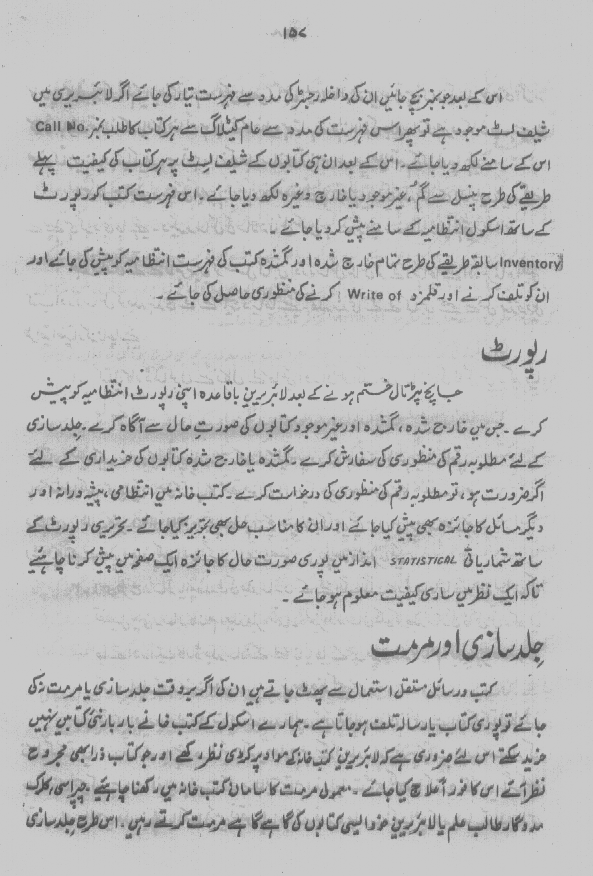 ۱۵۷
اس کے بعد جو نمبر بچ جائیں ان کی داخلہ رجسٹر کی مدد سے فہرست تیار کی جائے اگر لائبریری میں
شیلف لسٹ موجود ہے تو پھر اس فہرست کی مدد سے عام کیٹلاگ سے ہر کتاب کا طلب نمبر Call No.
اس کے سامنے لکھ دیا جائے۔ اس کے بعد ان ہی کتابوں کے شیلف لسٹ پر ہر کتاب کی کیفیت پہلے
طریقے کی طرح پنسل سے گم، غیر موجود یا خارج وغیرہ لکھ دیا جائے۔ اس فہرست کتب کو رپورٹ
کے ساتھ اسکول انتظامیہ کے سامنے پیش کر دیا جائے۔
Inventory سابقہ طریقے کی طرح تمام خارج شدہ اور گمشدہ کتب کی فہرست انتظامیہ کو پیش کی جائے اور
ان کو تلف کرنے اور قلمزد Write of کرنے کی منظوری حاصل کی جائے۔
رپورٹ
جانچ پڑتال ختم ہونے کے بعد لائبریرین باقاعدہ اپنی رپورٹ انتظامیہ کو پیش
کرے۔ جس میں خارج شدہ، گمشدہ اور غیر موجود کتابوں کی صورت حال سے آگاہ کرے۔ جلد سازی
کے لئے مطلوبہ رقم کی منظوری کی سفارش کرے۔ گمشدہ یا خارج شدہ کتابوں کی خریداری کے لئے
اگر ضرورت ہو، تو مطلوبہ رقم کی منظوری کی درخواست کرے۔ کتب خانہ میں انتظامی، پیشہ ورانہ اور
دیگر مسائل کا جائزہ بھی پیش کیا جائے اور ان کا مناسب حل بھی تجویز کیا جائے۔ تحریری رپورٹ کے
ساتھ شماریاتی STATISTICAL انداز میں پوری صورت حال کا جائزہ ایک صفحہ میں پیش کرنا چاہئیے
تاکہ ایک نظر میں ساری کیفیت معلوم ہو جائے۔
جلد سازی اور مرمت
کتب و رسائل مستقل استعمال سے پھٹ جاتے ہیں ان کی اگر بروقت جلد سازی یا مرمت نہ کی
جائے تو پوری کتاب یا رسالہ تلف ہو جاتا ہے۔ ہمارے اسکول کے کتب خانے بار بار نئی کتابیں نہیں
خرید سکتے اس لئے ضروری ہے کہ لائبریرین کتب خانہ کے مواد پر کڑی نظر رکھے اور جو کتاب ذرا بھی مجروح
نظر آئے اس کا فوراً علاج کیا جائے۔ معمولی مرمت کا سامان کتب خانہ میں رکھنا چاہئیے۔ چپراسی، کلرک
مددگار طالب علم یا لائبریرین خود ایسی کتابوں کی گاہے گاہے مرمت کرتے رہیں۔ اس طرح جلد سازی